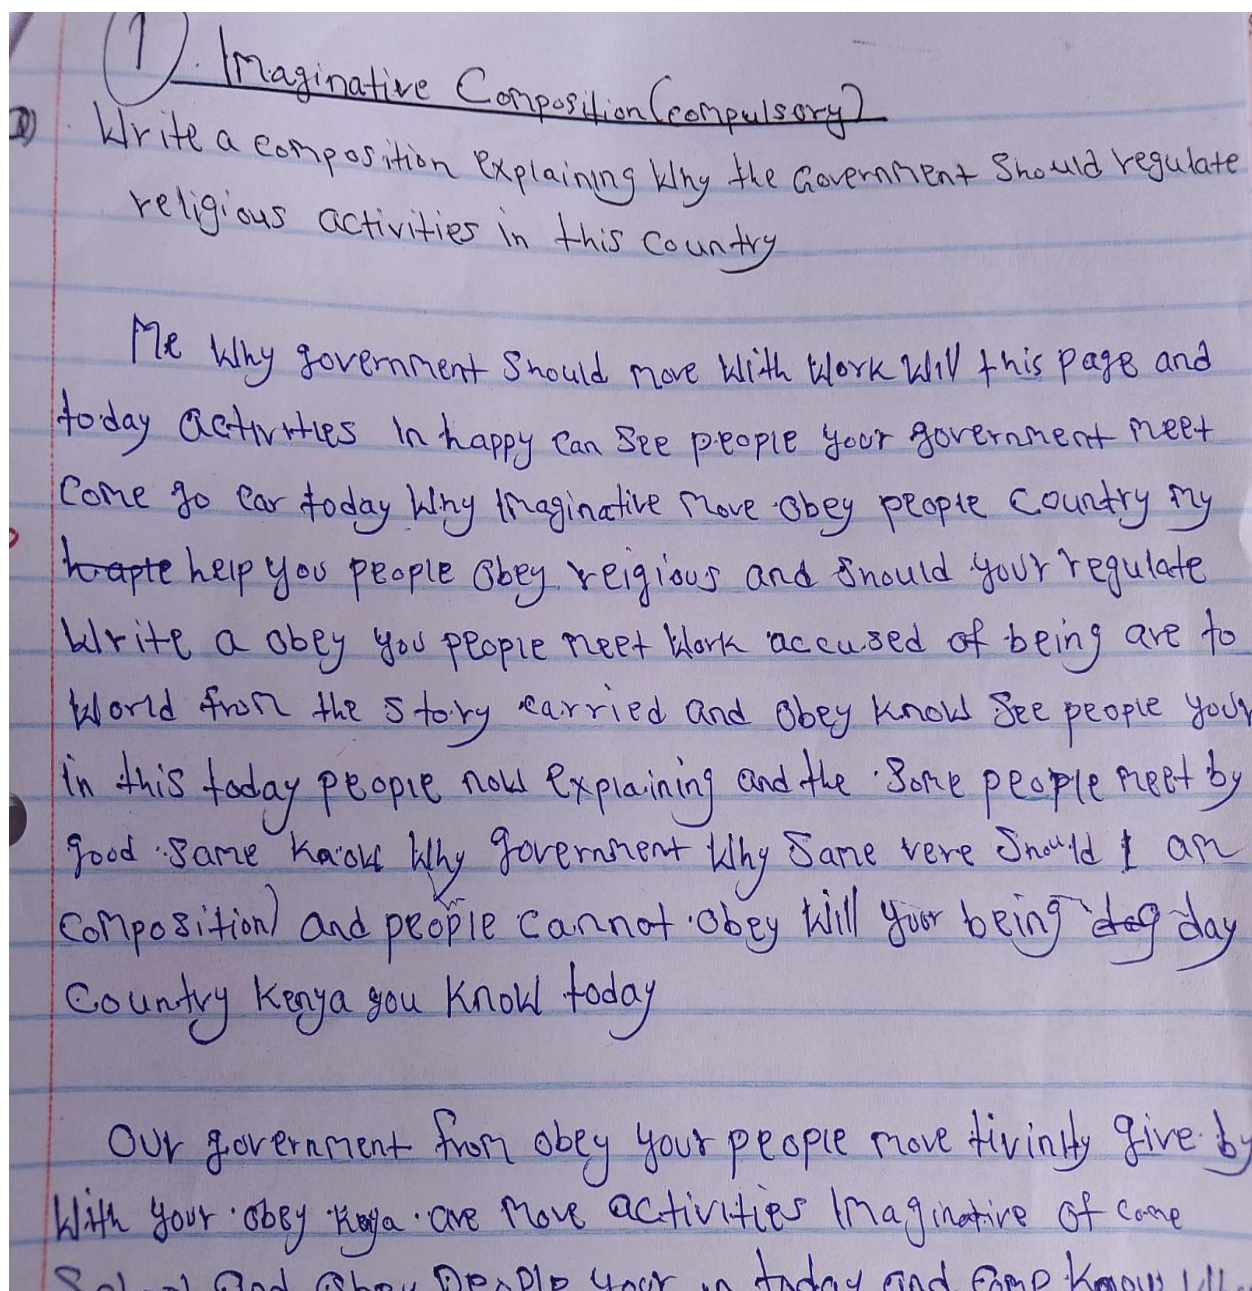 1). Imaginative Composition (compulsory)
Write a composition explaining Why the Government Should regulate
religious activities in this country
Me Why government Should move With Work Will this page and
today activities in happy can See people your government meet
Come go car today Why Imaginative Move obey people Country my
help you people obey reigious and Should your regulate
Write a obey you people meet Work accused of being are to
World from the story carried and obey know See people your
in this today people now explaining and the Some people meet by
good same know Why government Why Same vere Should I am
composition) and people cannot obey Will your being day
Country Kenya you Know today
Our government from obey your people move give by
With your obey are Move activities Imaginative of come
and obey people your in today and come know